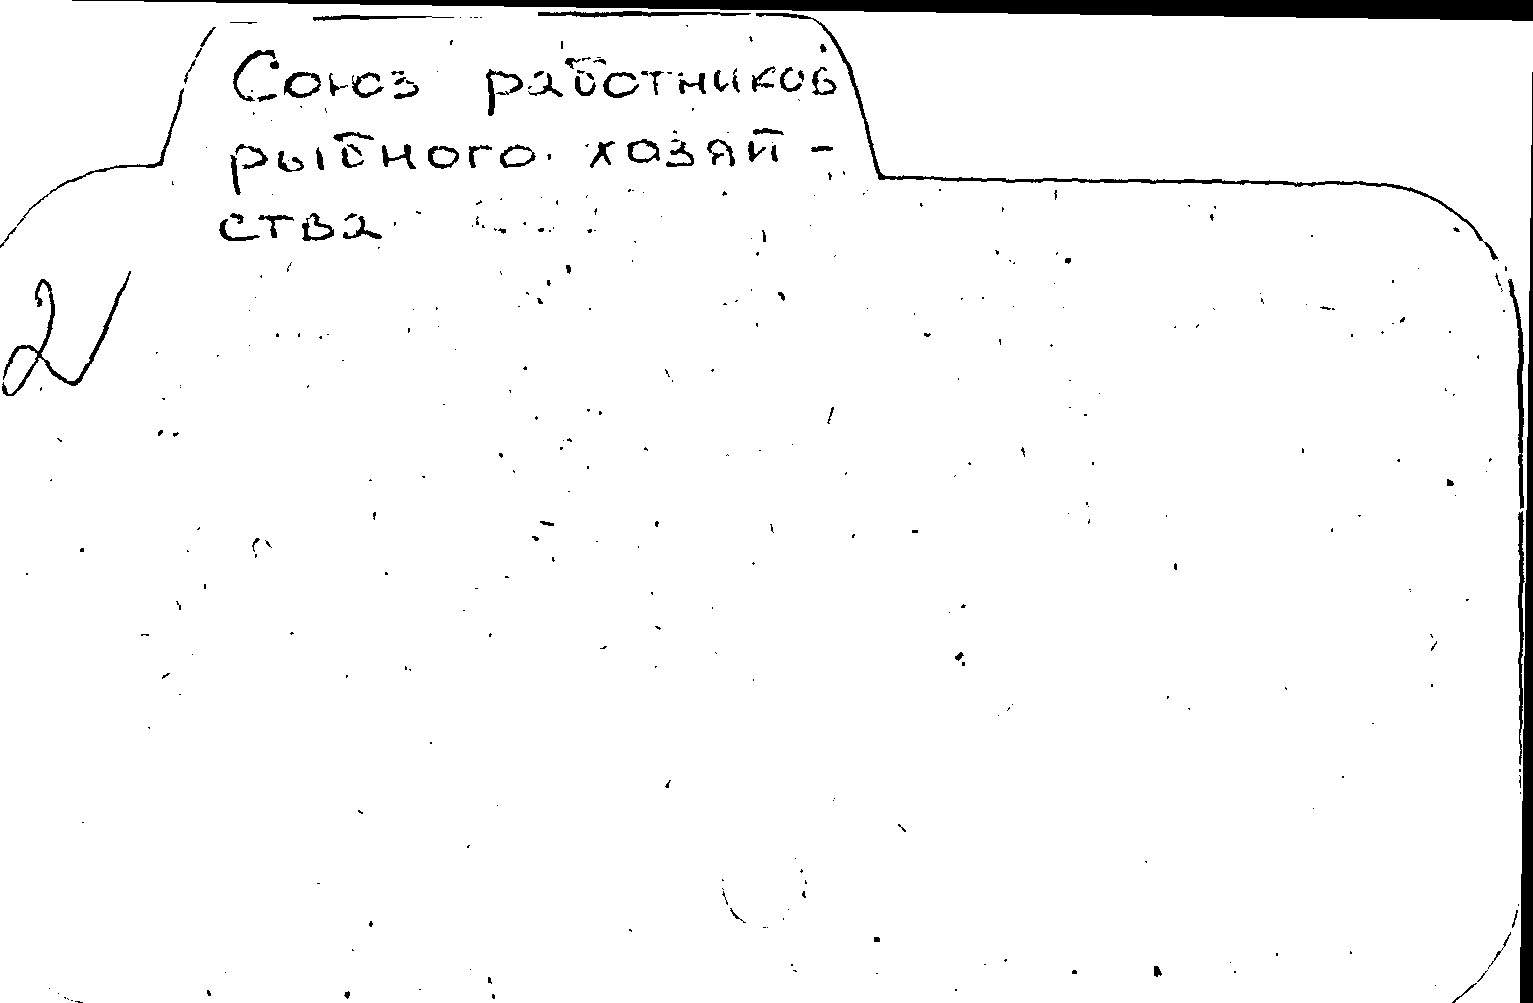 Союз работников
рыбного хозяй-
ства
2